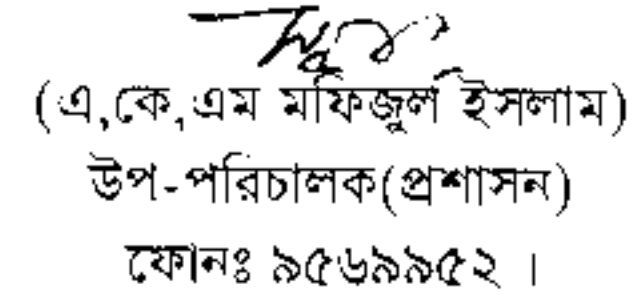 (এ,কে,এম মফিজুল ইসলাম)
উপ-পরিচালক(প্রশাসন)
ফোনঃ ৯৫৬৯৯৫২ ।